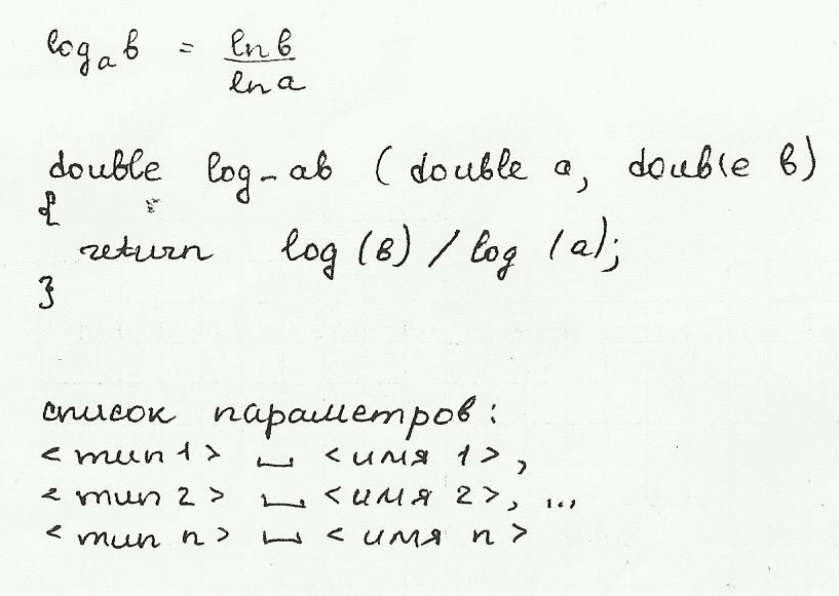 log_a b = ln b / ln a
double log_ab (double a, double b)
{
return log (b) / log (a);
}
список параметров:
<тип 1> ␣ <имя 1>,
<тип 2> ␣ <имя 2>, ...
<тип n> ␣ <имя n>